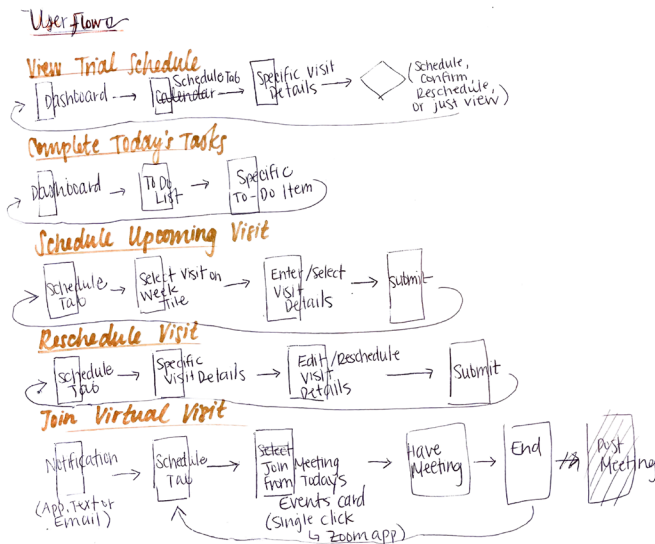 User flows
View Trial Schedule
Dashboard
Schedule Tab
Calendar
Specific Visit
Details
(Schedule,
Confirm,
Reschedule,
or just view)
Complete Today's Tasks
Dashboard
To Do
List
Specific
To-Do Item
Schedule Upcoming Visit
Schedule
Tab
Select Visit on
Week
Tile
Enter/Select
Visit
Details
Submit
Reschedule Visit
Schedule
Tab
Specific
Visit Details
Edit/Reschedule
Visit
Details
Submit
Join Virtual Visit
Notification
(App, Text or
Email)
Schedule
Tab
Select
Join Meeting
From Todays
Events card
(Single click
↳ Zoom app)
Have
Meeting
End
Post
Meeting